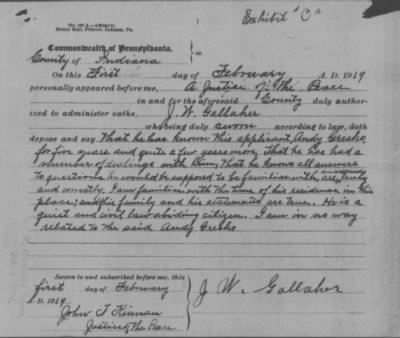 Exhibit "C"
No. 197 A.—Affidavit.
Henry Hall, Printer, Indiana, Pa.
Commonwealth of Pennsylvania,
County of Indiana } ss:
On this First day of February A. D. 1919
personally appeared before me, A Justice of The Peace
in and for the aforesaid County duly author-
ized to administer oaths, J. W. Gallaher
who being duly sworn according to law, doth
depose and say That he has known this applicant, Andy Greeko
for five years and quite a few years more, That he has had a
number of dealings with him, That he knows all answers
to questions he would be supposed to be familiar with, are truly
and correctly. I am familiar with the time of his residence in this
place; and his family and his statements are true. He is a
quiet and civil law abiding citizen. I am in no way
related to the said Andy Greeko
Sworn to and subscribed before me, this
first day of February
A. D. 1919
John T Kinnan
Justice of the Peace
J W. Gallaher